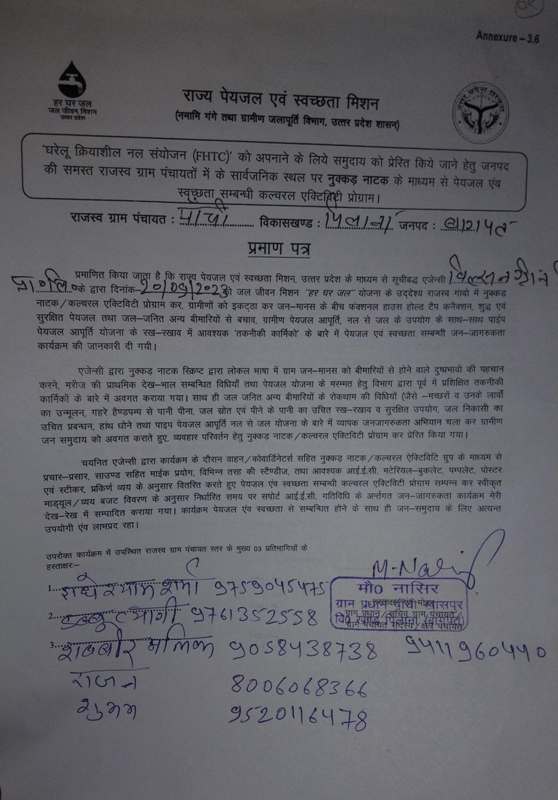 Annexure – 3.6
हर घर जल
जल जीवन मिशन
उत्तर प्रदेश
राज्य पेयजल एवं स्वच्छता मिशन
(नमामि गंगे तथा ग्रामीण जलापूर्ति विभाग, उत्तर प्रदेश शासन)
'घरेलू क्रियाशील नल संयोजन (FHTC)' को अपनाने के लिये समुदाय को प्रेरित किये जाने हेतु जनपद
की समस्त राजस्व ग्राम पंचायतों में के सार्वजनिक स्थल पर नुक्कड़ नाटक के माध्यम से पेयजल एंव
स्वच्छता सम्बन्धी कल्चरल एक्टिविटी प्रोग्राम।
राजस्व ग्राम पंचायत : पांची विकासखण्ड : पिलाना जनपद : बागपत
प्रमाण पत्र
प्रमाणित किया जाता है कि राज्य पेयजल एवं स्वच्छता मिशन, उत्तर प्रदेश के माध्यम से सूचीबद्ध एजेन्सी
प्रा० लि० के द्वारा दिनांक 20/09/2023 को जल जीवन मिशन "हर घर जल" योजना के उद्देश्य राजस्व गांवो में नुक्कड़
नाटक/कल्चरल एक्टिविटी प्रोग्राम कर, ग्रामीणों को इकट्ठा कर जन-मानस के बीच फंक्शनल हाउस होल्ड टैप कनैक्शन, शुद्ध एवं
सुरक्षित पेयजल तथा जल-जनित अन्य बीमारियों से बचाव, ग्रामीण पेयजल आपूर्ति, नल से जल के उपयोग के साथ-साथ पाइप
पेयजल आपूर्ति योजना के रख-रखाव में आवश्यक 'तकनीकी कार्मिको' के बारे में पेयजल एवं स्वच्छता सम्बन्धी जन-जागरुकता
कार्यक्रम की जानकारी दी गयी।
एजेन्सी द्वारा नुक्कड नाटक स्क्रिप्ट द्वारा लोकल भाषा में ग्राम जन-मानस को बीमारियों से होने वाले दुष्प्रभावों की पहचान
करने, मरीज की प्राथमिक देख-भाल सम्बन्धित विधियाँ तथा पेयजल योजना के मरम्मत हेतु विभाग द्वारा पूर्व में प्रशिक्षित तकनीकी
कार्मिकों के बारे में अवगत कराया गया। साथ ही जल जनित अन्य बीमारियों के रोकथाम की विधियों (जैसे -मच्छरों व उनके लार्वो
का उन्मूलन, गहरे हैण्डपम्प से पानी पीना, जल स्रोत एवं पीने के पानी का उचित रख-रखाव व सुरक्षित उपयोग, जल निकासी का
उचित प्रबन्धन, हांथ धोने तथा पाइप पेयजल आपूर्ति नल से जल योजना के बारे में व्यापक जनजागरुकता अभियान चला कर ग्रामीण
जन समुदाय को अवगत कराते हुए, व्यवहार परिवर्तन हेतु नुक्कड नाटक/कल्चरल एक्टिविटी प्रोग्राम कर प्रेरित किया गया।
चयनित एजेन्सी द्वारा कार्यक्रम के दौरान वाहन/कोवार्डिनेटर्स सहित नुक्कड़ नाटक/कल्चरल एक्टिविटी ग्रुप के माध्यम से
प्रचार-प्रसार, साउण्ड सहित माईक प्रयोग, विभिन्न तरह की स्टैण्डीज, तथा आवश्यक आई.ई.सी. मटेरियल-बुकलेट, पम्पलेट, पोस्टर
एवं स्टीकर, प्रकिर्ण व्यय के अनुसार वितरित करते हुए पेयजल एंव स्वच्छता सम्बन्धी कल्चरल एक्टिविटी प्रोग्राम सम्पन्न कर स्वीकृत
माड्यूल/व्यय बजट विवरण के अनुसार निर्धारित समय पर सपोर्ट आई.ई.सी. गतिविधि के अर्न्तगत जन-जागरुकता कार्यक्रम मेरी
देख-रेख में सम्पादित कराया गया। कार्यक्रम पेयजल एंव स्वच्छता से सम्बन्धित होने के साथ ही जन-समुदाय के लिए अत्यन्त
उपयोगी एंव लाभप्रद रहा।
उपरोक्त कार्यक्रम में उपस्थित राजस्व ग्राम पंचायत स्तर के मुख्य 03 प्रतिभागियों के
हस्ताक्षर:-
M.Nasir
1. राधे श्याम शर्मा 9759045475
मौ0 नासिर
ग्राम प्रधान पांची
2. त्यागी 9761352558
3. मलिक 9058438738 9411960440
राजन 8006068366
शुभम 9520116478